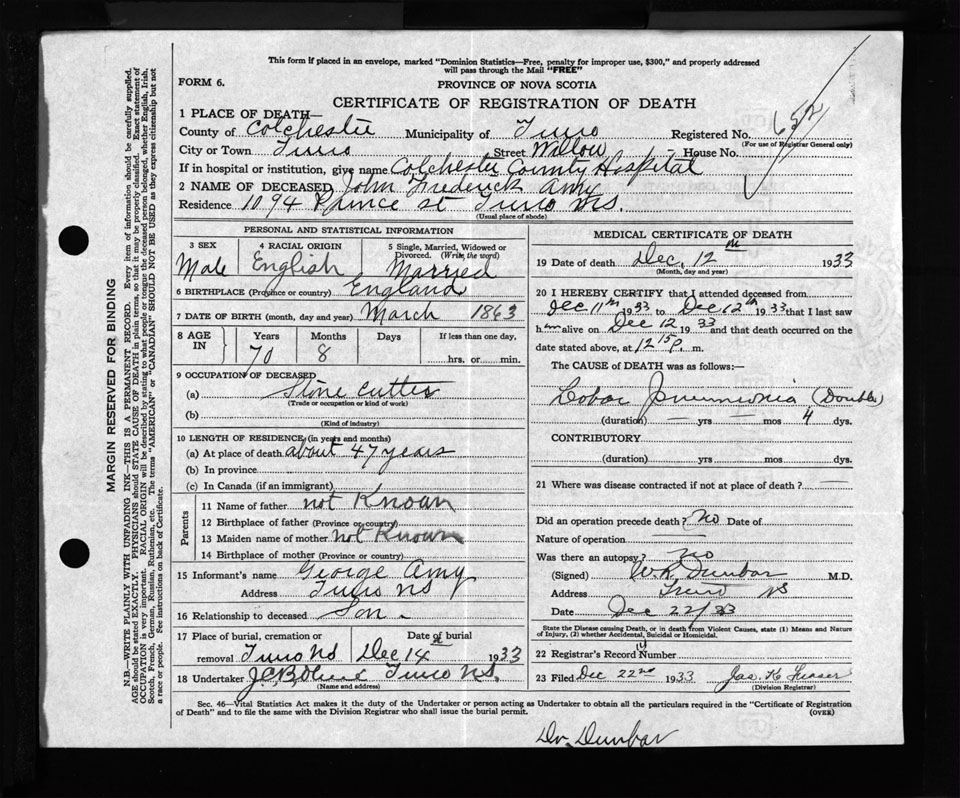 This form if placed in an envelope, marked "Dominion Statistics—Free, penalty for improper use, $300," and properly addressed
will pass through the Mail "FREE"
FORM 6.
PROVINCE OF NOVA SCOTIA
CERTIFICATE OF REGISTRATION OF DEATH
1 PLACE OF DEATH—
County of Colchester Municipality of Truro Registered No. 652
(For use of Registrar General only)
City or Town Truro Street Willow House No.
If in hospital or institution, give name Colchester County Hospital
2 NAME OF DECEASED John Frederick Amy
Residence 1094 Prince st Truro N.S.
(Usual place of abode)
PERSONAL AND STATISTICAL INFORMATION
3 SEX 4 RACIAL ORIGIN 5 Single, Married, Widowed or
Divorced. (Write the word)
Male English Married
6 BIRTHPLACE (Province or country) England
7 DATE OF BIRTH (month, day and year) March 1863
8 AGE IN Years Months Days If less than one day,
70 8 hrs. or min.
9 OCCUPATION OF DECEASED
(a) Stone cutter
(Trade or occupation or kind of work)
(b)
(Kind of industry)
10 LENGTH OF RESIDENCE (in years and months)
(a) At place of death about 47 years
(b) In province
(c) In Canada (if an immigrant)
Parents
11 Name of father not Known
12 Birthplace of father (Province or country)
13 Maiden name of mother not Known
14 Birthplace of mother (Province or country)
15 Informant's name George Amy
Address Truro NS
16 Relationship to deceased Son.
17 Place of burial, cremation or Date of burial
removal Truro NS Dec 14th 1933
18 Undertaker Truro NS.
(Name and address)
MEDICAL CERTIFICATE OF DEATH
19 Date of death Dec. 12th 1933
(Month, day and year)
20 I HEREBY CERTIFY that I attended deceased from
Dec 11th 1933 to Dec 12th 1933 that I last saw
him alive on Dec 12 1933 and that death occurred on the
date stated above, at 12 15 p. m.
The CAUSE of DEATH was as follows:—
Lobar Pneumonia (Double)
(duration) — yrs — mos 4 dys.
CONTRIBUTORY
(duration) yrs mos dys.
21 Where was disease contracted if not at place of death? —
Did an operation precede death? No Date of
Nature of operation —
Was there an autopsy? No
(Signed) W.R. Dunbar M.D.
Address Truro NS
Date Dec 22/33
State the Disease causing Death, or in death from Violent Causes, state (1) Means and Nature
of Injury, (2) whether Accidental, Suicidal or Homicidal.
22 Registrar's Record Number
23 Filed Dec 22nd 1933 Jas. H. Fraser
(Division Registrar)
Sec. 46—Vital Statistics Act makes it the duty of the Undertaker or person acting as Undertaker to obtain all the particulars required in the "Certificate of Registration
of Death" and to file the same with the Division Registrar who shall issue the burial permit. (OVER)
Dr. Dunbar
MARGIN RESERVED FOR BINDING
N.B.—WRITE PLAINLY WITH UNFADING INK—THIS IS A PERMANENT RECORD. Every item of information should be carefully supplied.
AGE should be stated EXACTLY. PHYSICIANS should STATE CAUSE OF DEATH in plain terms, so that it may be properly classified. Exact statement of
OCCUPATION is very important. RACIAL ORIGIN will be described by stating to what people or tongue the deceased person belonged, whether English, Irish,
Scotch, French, German, Russian, Ruthenian, etc. The terms "AMERICAN" or "CANADIAN" SHOULD NOT BE USED as they express citizenship but not
a race or people. See instructions on back of Certificate.